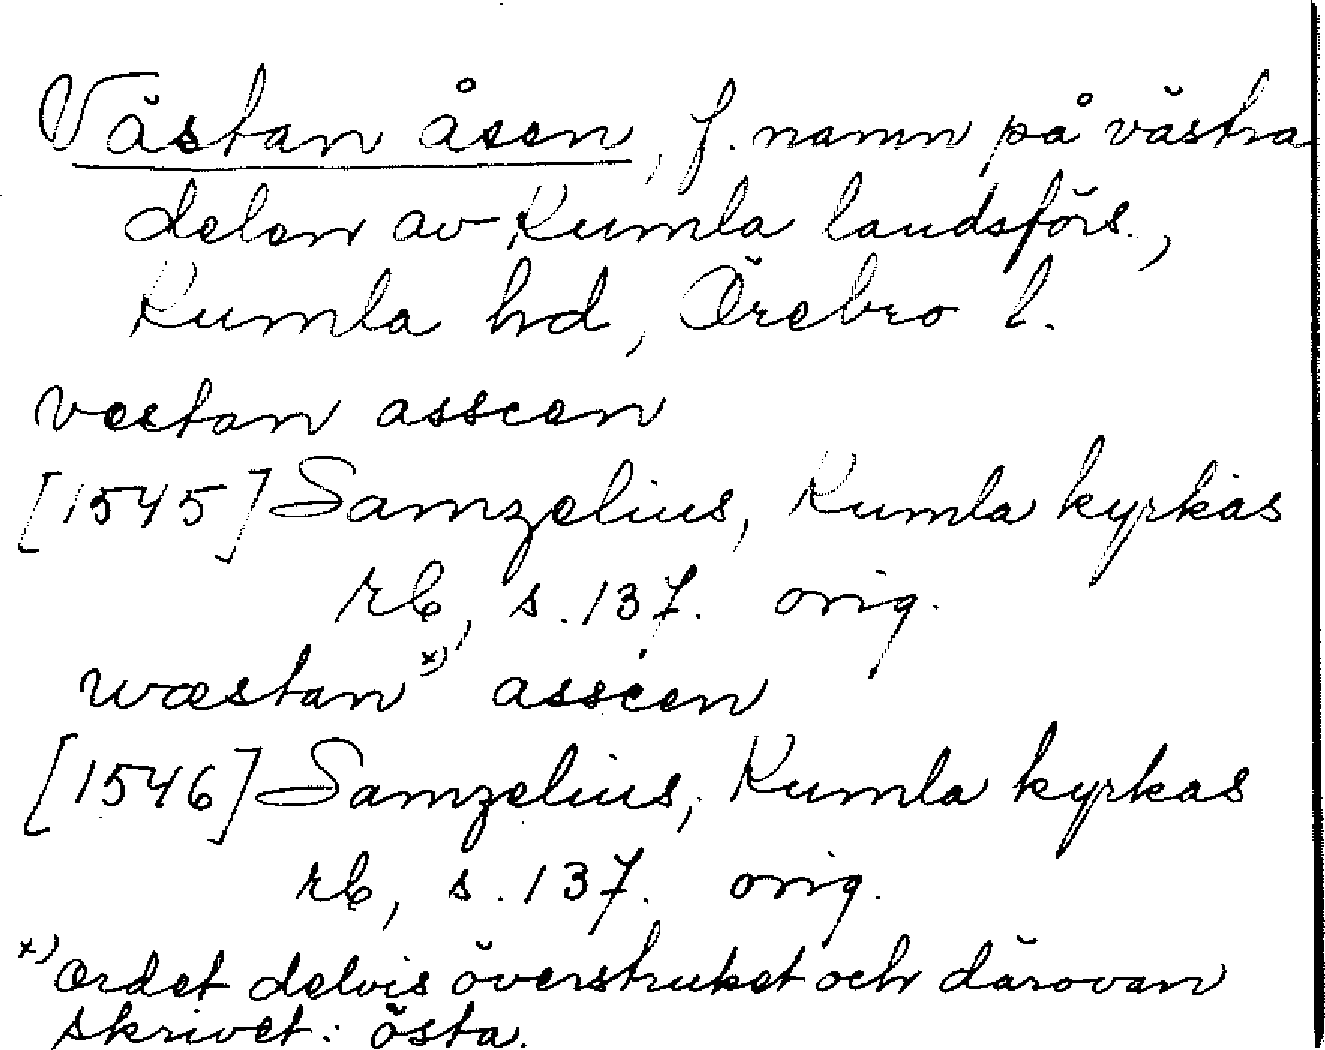 Västan åsen, f. namn på västra
delen av Kumla landsförs.,
Kumla hd, Örebro l.
vestan asseen
[1545] Samzelius, Kumla kyrkas
rb, s. 137. orig.
wæstan x) asseen
[1546] Samzelius, Kumla kyrkas
rb, s. 137. orig.
x) ordet delvis överstruket och därovan
skrivet: östa.